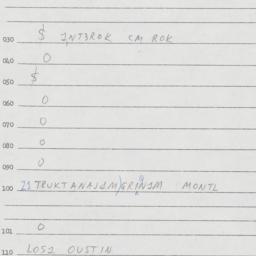 030 $ INT3ROK CM ROK
040 O
050 $
060 O
070 O
080 O
090 O
100 21TRUKTANAJ1M)GRIN1M MONTL
101 O
110 LOS1 OUSTIN